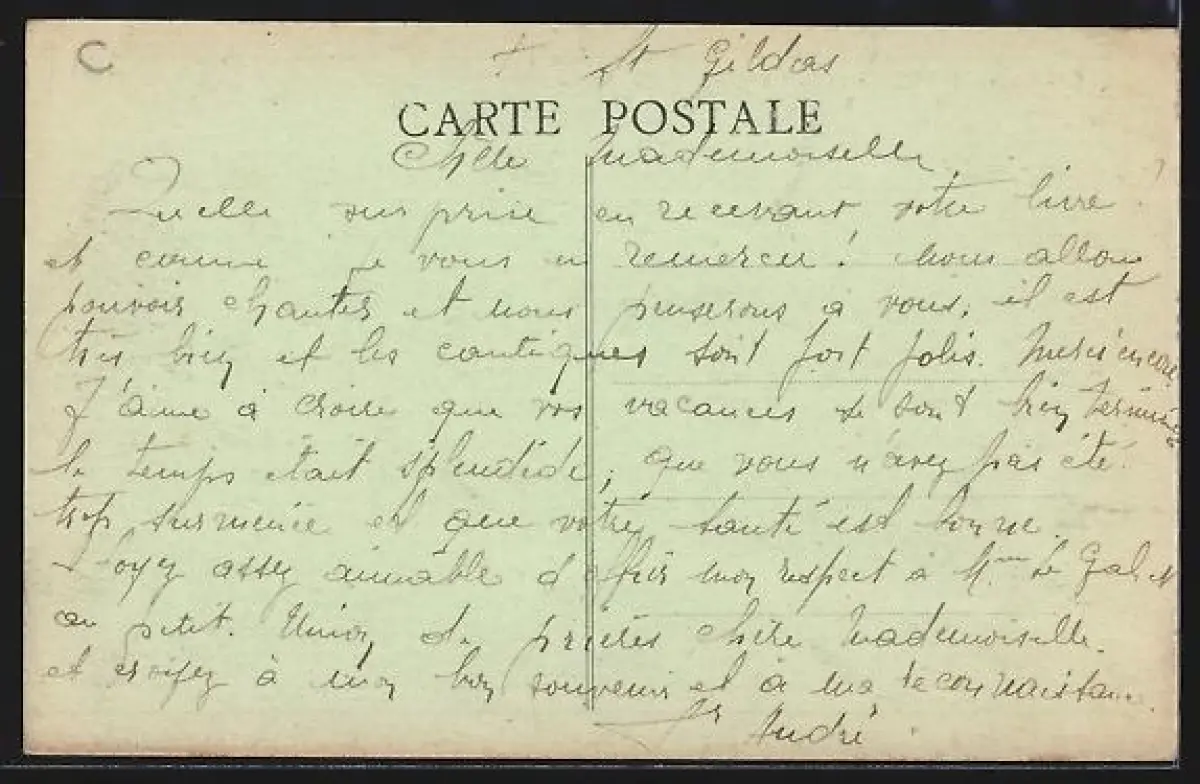 C
+ St Gildas
CARTE POSTALE
Chère Mademoiselle
Quelle surprise en recevant votre livre
et comme je vous en remercie! Nous allons
pouvoir chanter et nous penserons à vous, il est
très bien et les cantiques sont fort jolis. Merci encore
J'aime à croire que vos vacances se sont bien terminées
le temps était splendide, que vous n'avez pas été
trop surmenée et que votre santé est bonne.
Soyez assez aimable d'offrir mon respect à Mme Le Gal et
au petit. Union de prières chère Mademoiselle.
et croyez à mon bon souvenir et à ma reconnaissance
Sr André.